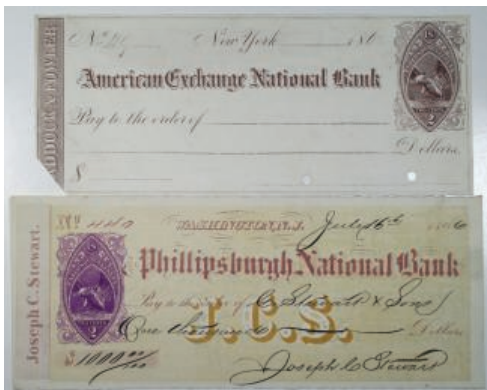 ADDUCK & FOWLER
No. New York 186
American Exchange National Bank
Pay to the order of
Dollars.
$
2
Joseph C. Stewart.
No. 440 WASHINGTON, N.J. July 16th
Phillipsburgh National Bank
Pay to the order of C. Stewart & Sons
One thousand Dollars
J.C.S.
$1000 00/100 Joseph C Stewart
2